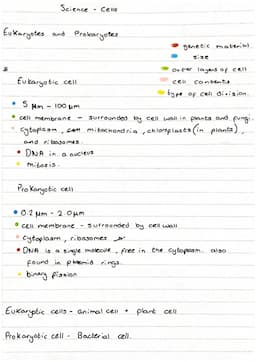 Science - Cells
Eukaryotes and Prokaryotes
genetic material
size
outer layers of cell
cell contents
type of cell division.
Eukaryotic cell
5 μm - 100 μm
cell membrane - surrounded by cell wall in plants and fungi.
cytoplasm, mitochondria, chloroplasts (in plants),
and ribosomes.
DNA in a nucleus
mitosis.
Prokaryotic cell
0.2 μm - 2.0 μm
cell membrane - surrounded by cell wall
cytoplasm, ribosomes
DNA is a single molecule, free in the cytoplasm. also
found in plasmid rings.
binary fission
Eukaryotic cells - animal cell + plant cell.
Prokaryotic cell - Bacterial cell.